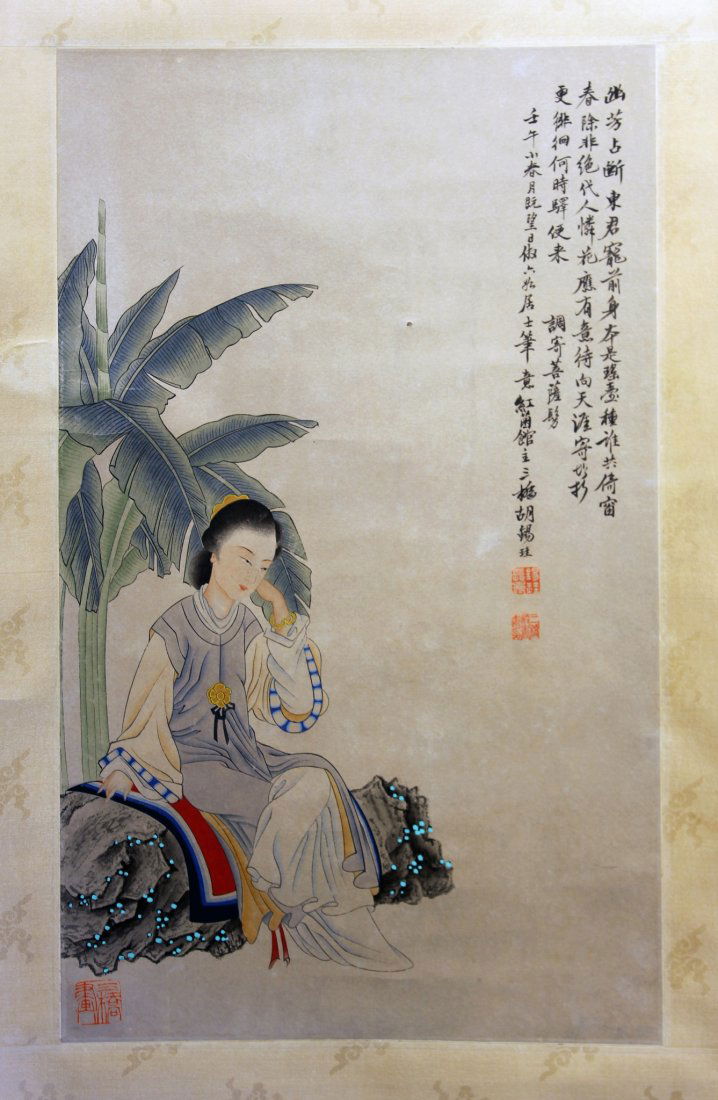 幽芳占断東君寵前身本是瑤臺種誰共倚窗
春除非絕代人憐花應有意待向天涯寄攀折
更徘徊何時驛使来
調寄菩薩鬘
壬午小春月既望日倣六如居士筆意紅茵館主三橋胡錫珪
三橋